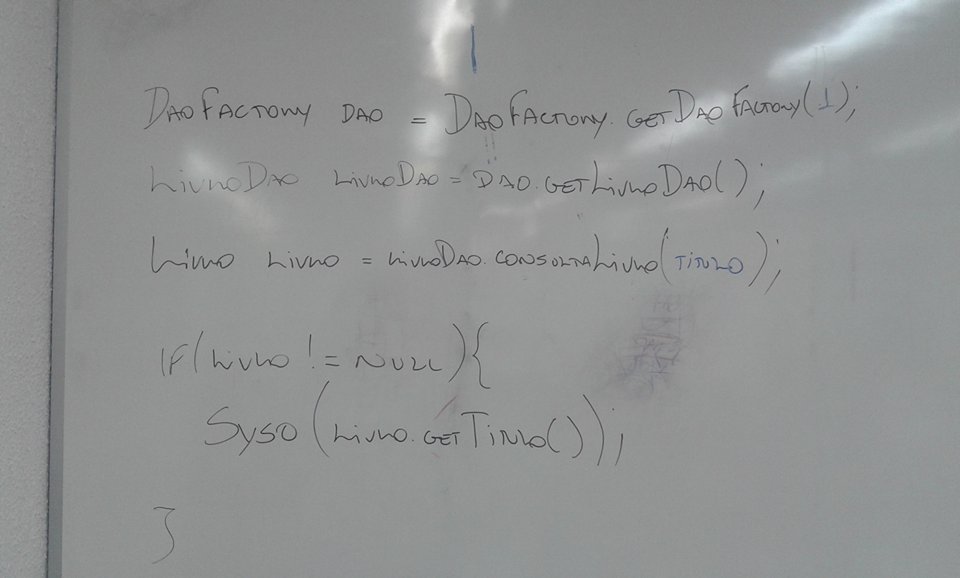 DaoFactory dao = DaoFactory.getDaoFactory(1);
LivroDao livroDao = dao.getLivroDao();
Livro livro = livroDao.consultaLivro(titulo);
if(livro != null){
Syso(livro.getTitulo());
}